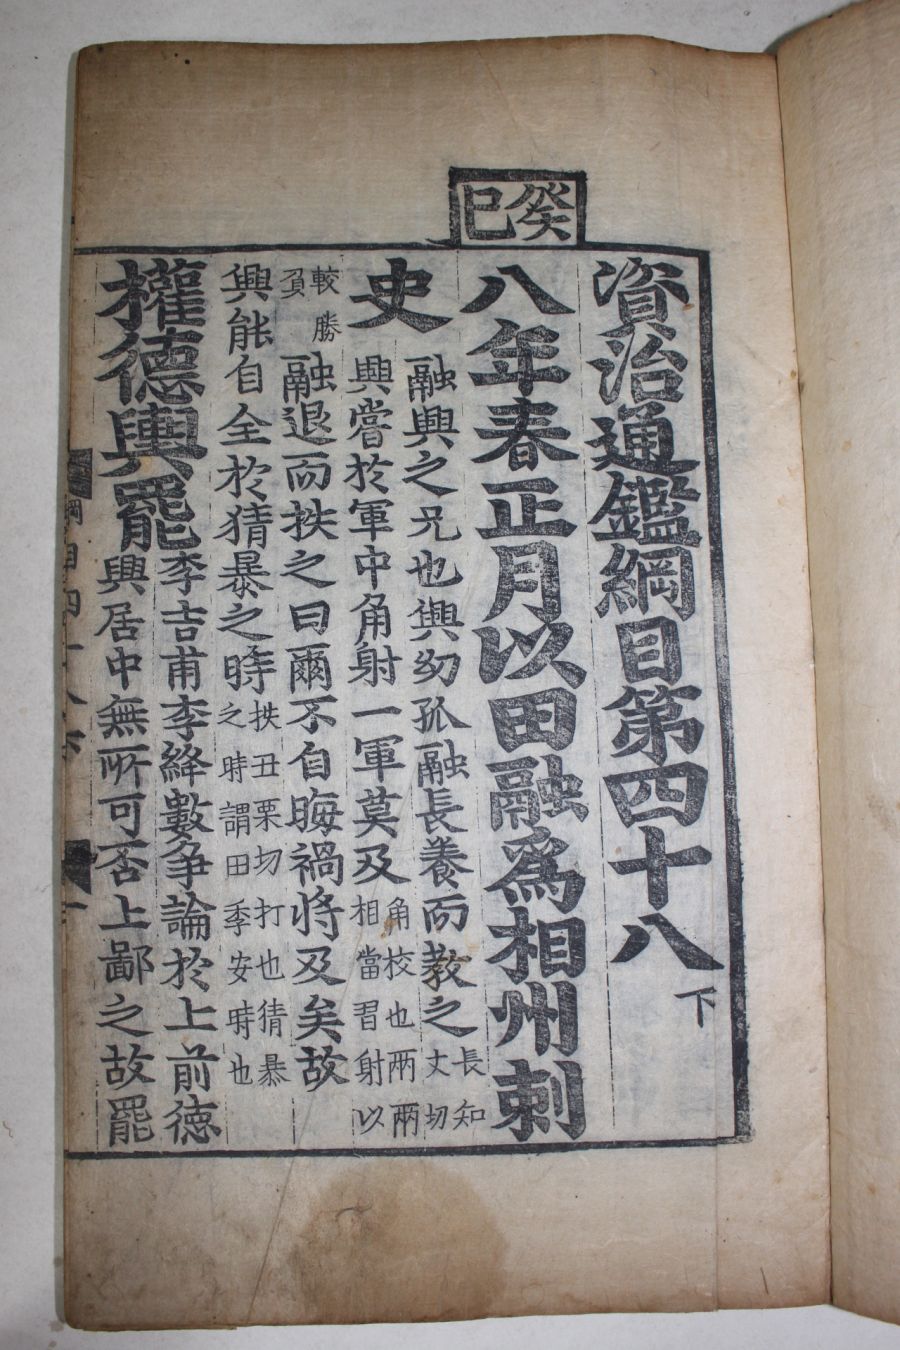 癸巳
資治通鑑綱目第四十八下
八年春正月以田融爲相州刺
史
融興之兄也興幼孤融長養而教之
長知
丈切
興嘗於軍中角射一軍莫及
角校也兩兩
相當習射以
較勝
負
融退而抶之曰爾不自晦禍將及矣故
興能自全於猜暴之時
抶丑栗切打也猜暴
之時謂田季安時也
權德輿罷
李吉甫李絳數爭論於上前德
興居中無所可否上鄙之故罷